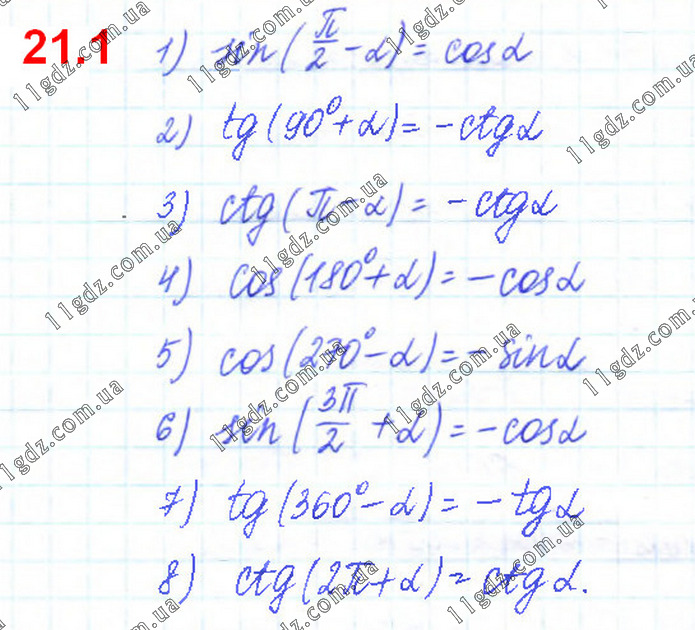 21.1
1) sin(π/2 - α) = cosα
2) tg(90° + α) = -ctgα
3) ctg(π - α) = -ctgα
4) cos(180° + α) = -cosα
5) cos(270° - α) = -sinα
6) sin(3π/2 + α) = -cosα
7) tg(360° - α) = -tgα
8) ctg(2π + α) = ctgα.
11gdz.com.ua
11gdz.com.ua
11gdz.com.ua
11gdz.com.ua
11gdz.com.ua
11gdz.com.ua
11gdz.com.ua
11gdz.com.ua
11gdz.com.ua
11gdz.com.ua
11gdz.com.ua
11gdz.com.ua
11gdz.com.ua